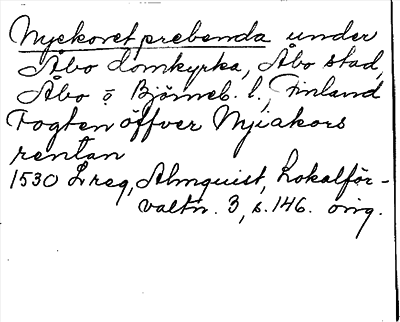 Nyckoret prebenda under
Åbo domkyrka, Åbo stad,
Åbo o Björneb. l., Finland
Fogten öffver Nyiakors
rentan
1530 Lreg, Almquist, Lokalför-
valtn. 3, s. 146. orig.